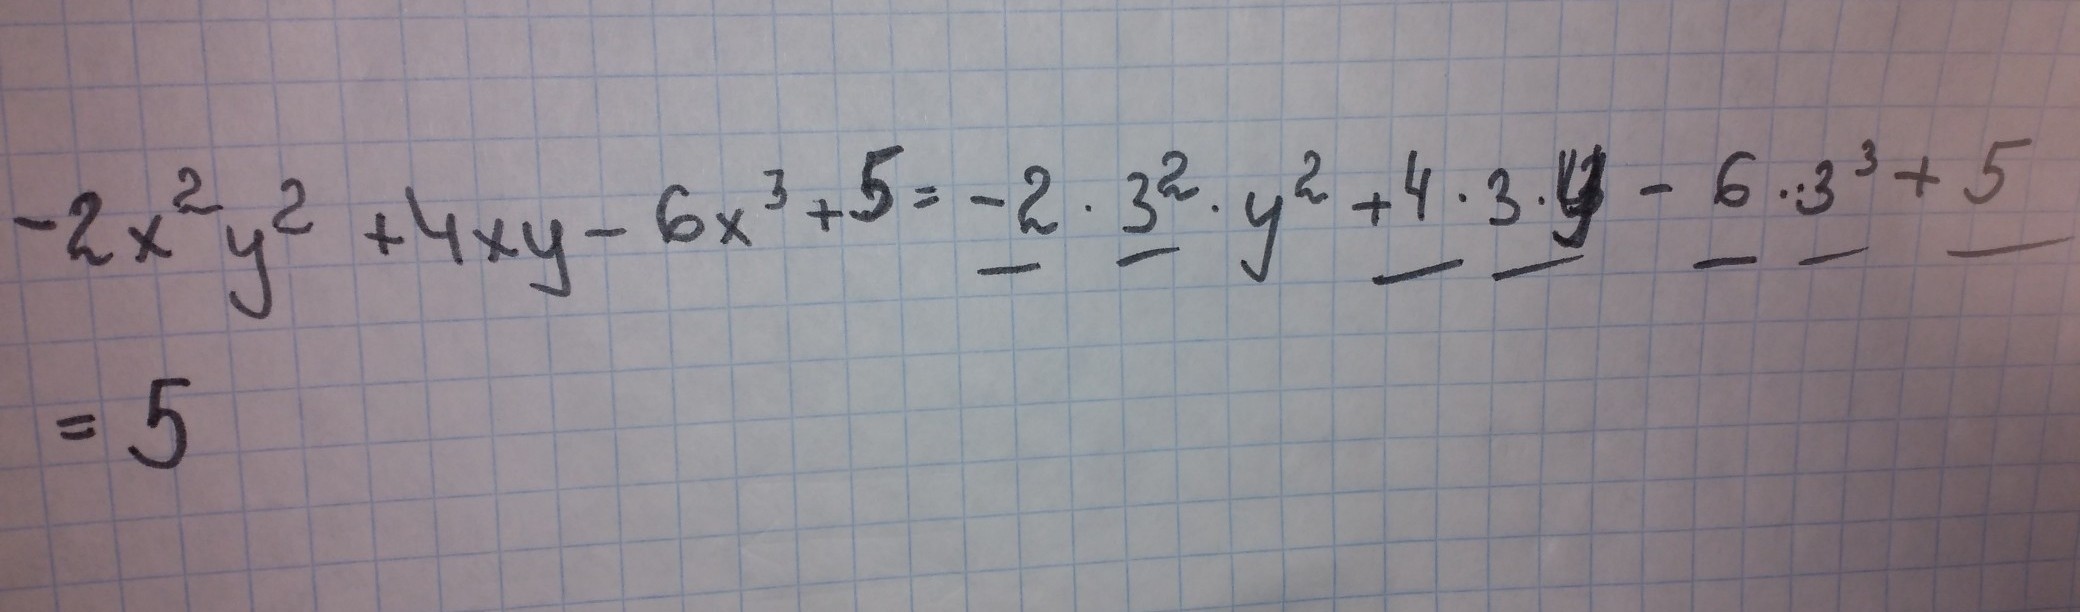 -2x²y² +4xy - 6x³ +5 = -2 · 3² · y² +4 · 3 · y - 6 · 3³ + 5
= 5